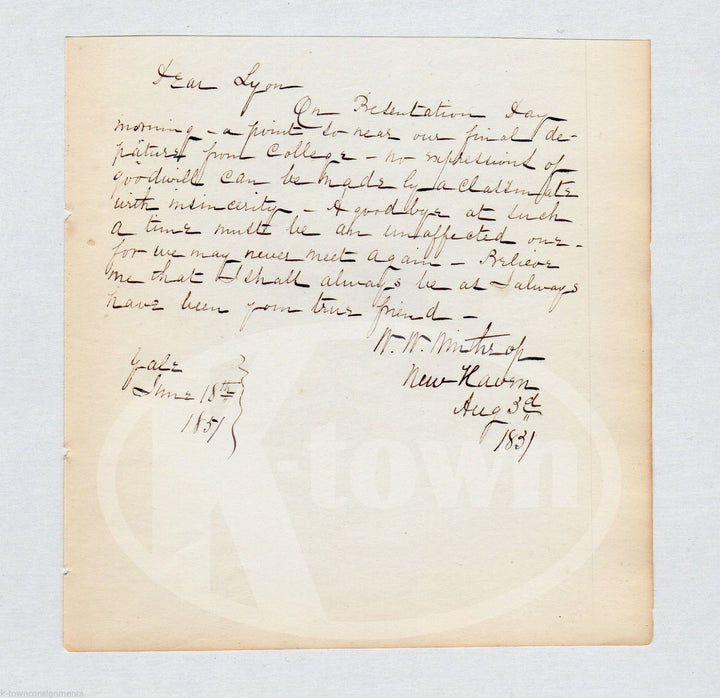 Dear Lyon
On Presentation Day
morning – a point so near our final de-
parture from College – no expressions of
goodwill can be made by a Classmate
with insincerity – A good bye at such
a time must be an unaffected one –
for we may never meet again – Believe
me that I shall always be as I always
have been your true friend –
W. W. Winthrop
New Haven
Aug 3d
1831
Yale
June 18th
1851
K-town
k-townconsignments